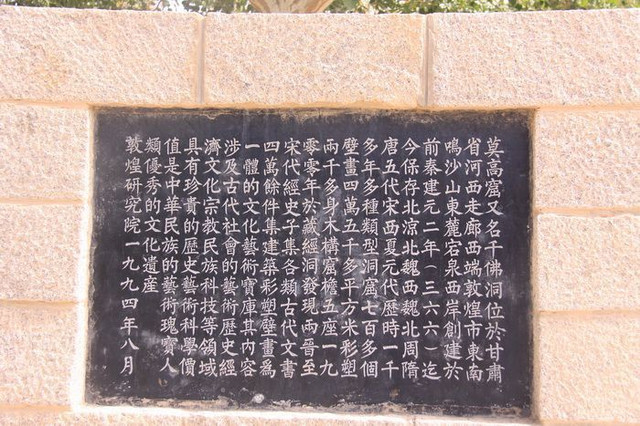 莫高窟又名千佛洞位於甘肅
省河西走廊西端敦煌市東南
鳴沙山東麓宕泉西岸創建於
前秦建元二年（三六六）迄
今保存北涼北魏西魏北周隋
唐五代宋西夏元代歷時一千
多年多種類型洞窟七百多個
壁畫四萬五千多平方米彩塑
兩千多身木構窟檐五座一九
零零年於藏經洞發現兩晉至
宋代經史子集各類古代文書
四萬餘件集建築彩塑壁畫為
一體的文化藝術寶庫其内容
涉及古代社會的藝術歷史經
濟文化宗教民族科技等領域
具有珍貴的歷史藝術科學價
值是中華民族的藝術瑰寶人
類優秀的文化遺産
敦煌研究院一九九四年八月